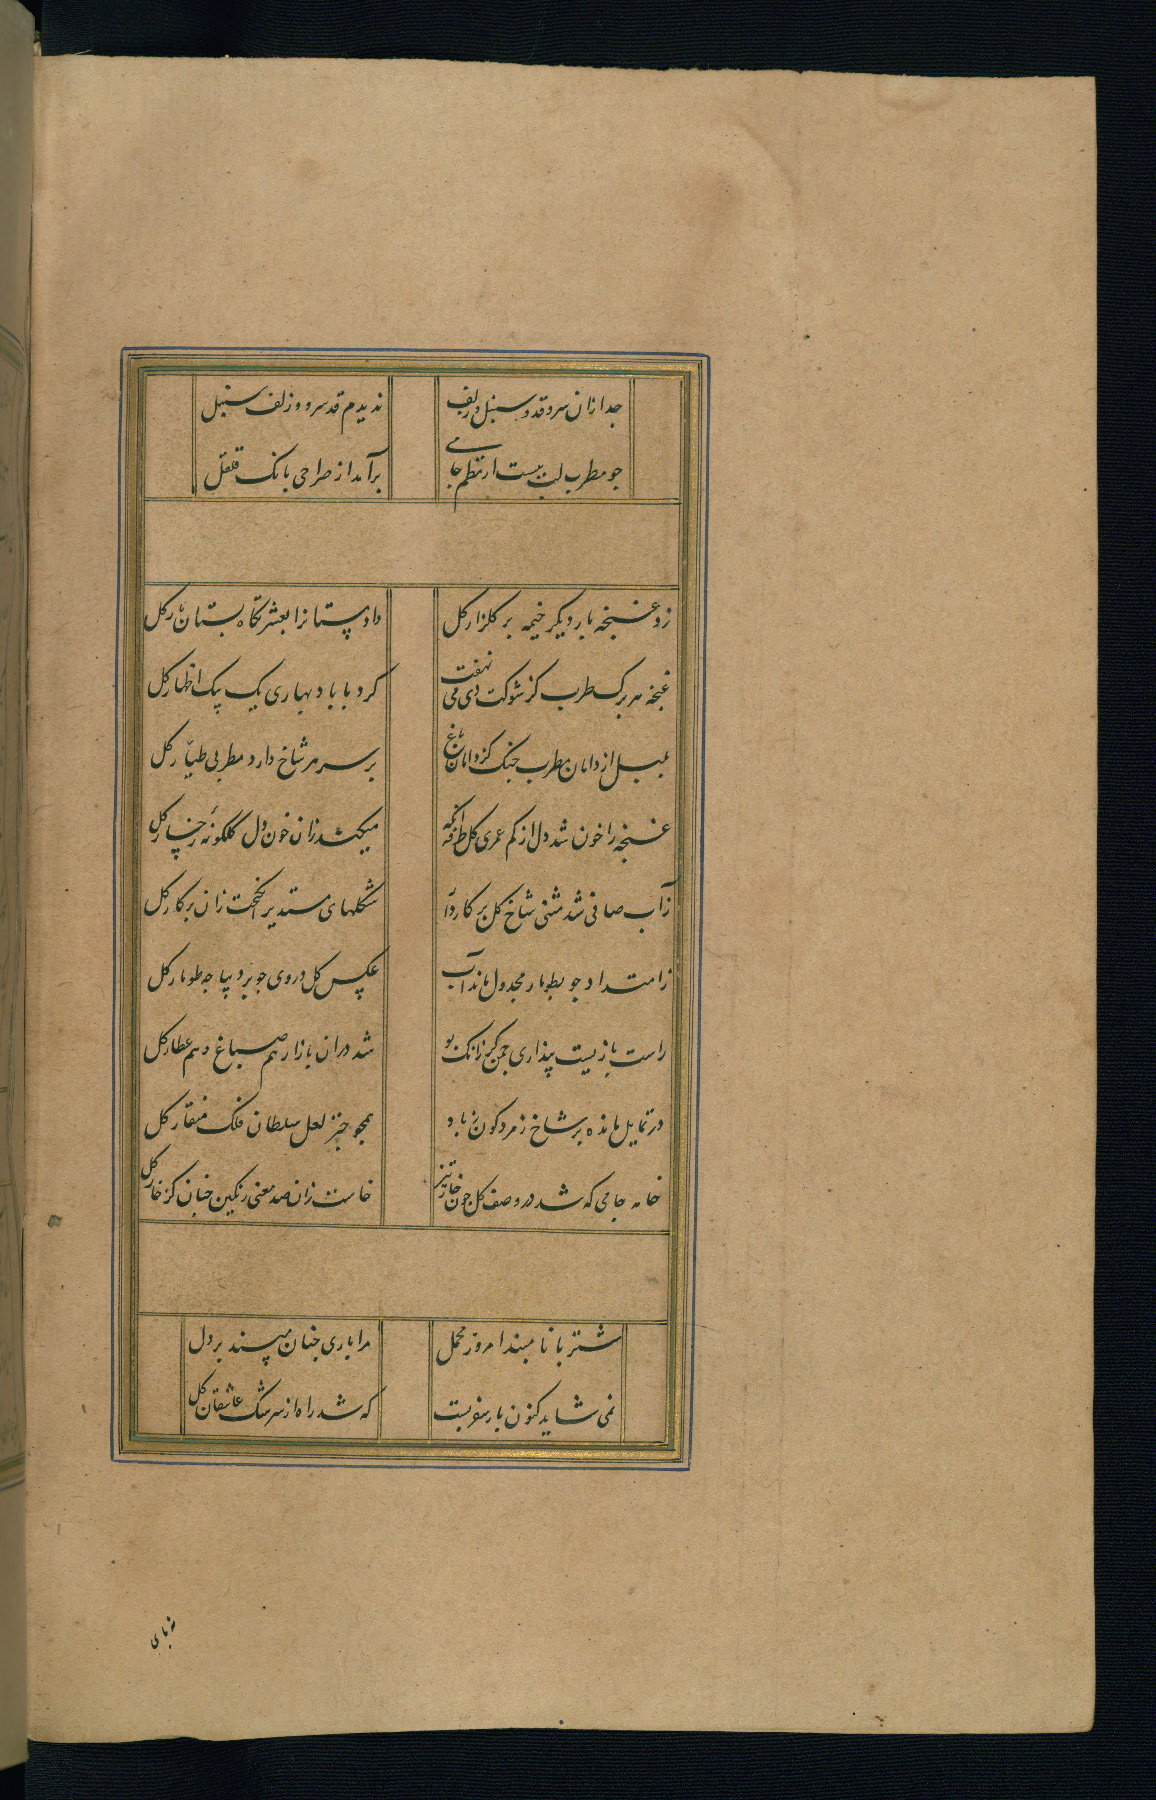 جدا زان سرو قد و سنبل زلف
ندیدم قد سرو و زلف سنبل
جو مطرب لب ببست از نظم جامی
برآمد از صراحی بانک قلقل
زد غنچه بار دیکر خیمه بر کلزار کل
داد مستانرا بعشرتکاه بستان بار کل
غنچه هر برک طرب کز شوکت دی می نهفت
کرد با باد بهاری یک بیک اظهار کل
بلبل از دامان مطرب جنک کز دامان باغ
بر سر هر شاخ دارد مطربی طیار کل
غنچه را خون شد دل از کم عمری کل طرفه آنکه
میکشد زان خون دل کلکونهٔ رخسار کل
زآب صافی شد مثنی شاخ کل برکاروار
شکلهای مستدیر انکیخت زان برکار کل
زامتداد جو بطومار مجدول ماند آب
عکس کل در روی جو بر دیباجه طومار کل
راست بازیست پنداری جمن کز رنک و بو
شد دران بازار هم صباغ و هم عطار کل
در تمایل مانده بر شاخ زمردکون ز باد
همجو جتر لعل سلطان فلک مقدار کل
خامه جامی که شد در وصف کل جون خار تیز
خاست زان صد معنی رنکین جنان کز خار کل
شتربانا مبند امروز محمل
مرا باری جنان مپسند بر دل
نمی شاید کنون بار سفر بست
که شد راه از سرشک عاشقان کل